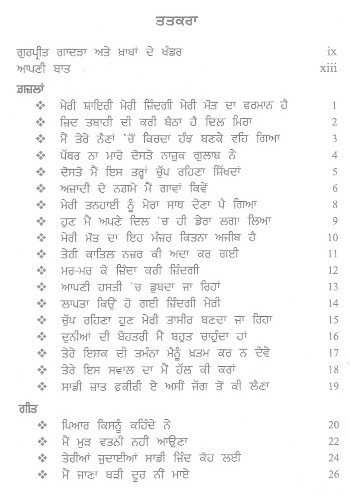 ਤਤਕਰਾ
ਗੁਰਪ੍ਰੀਤ ਗਾਦੜਾ ਅਤੇ ਖ਼ਾਬਾਂ ਦੇ ਖੰਡਰ ix
ਆਪਣੀ ਬਾਤ xiii
ਗ਼ਜ਼ਲਾਂ
❖ ਮੇਰੀ ਸ਼ਾਇਰੀ ਮੇਰੀ ਜ਼ਿੰਦਗੀ ਮੇਰੀ ਮੌਤ ਦਾ ਫਰਮਾਨ ਹੈ 1
❖ ਜ਼ਿਦ ਤਬਾਹੀ ਦੀ ਕਰੀ ਬੈਠਾ ਹੈ ਦਿਲ ਮਿਰਾ 2
❖ ਮੈਂ ਤੇਰੇ ਨੈਣਾਂ 'ਚੋਂ ਕਿਰਦਾ ਹੰਝ ਬਣਕੇ ਵਹਿ ਗਿਆ 3
❖ ਪੱਥਰ ਨਾ ਮਾਰੋ ਦੋਸਤੋ ਨਾਜ਼ੁਕ ਗੁਲਾਬ ਨੇ 4
❖ ਦੋਸਤੋ ਮੈਂ ਇਸ ਤਰ੍ਹਾਂ ਚੁੱਪ ਰਹਿਣਾ ਸਿੱਖਦਾਂ 5
❖ ਅਜ਼ਾਦੀ ਦੇ ਨਗਮੇ ਮੈਂ ਗਾਵਾਂ ਕਿਵੇਂ 6
❖ ਮੇਰੀ ਤਨਹਾਈ ਨੂੰ ਮੇਰਾ ਸਾਥ ਦੇਣਾ ਪੈ ਗਿਆ 8
❖ ਹੁਣ ਮੈਂ ਅਪਣੇ ਦਿਲ 'ਚ ਹੀ ਡੇਰਾ ਲਗਾ ਲਿਆ 9
❖ ਮੇਰੀ ਮੌਤ ਦਾ ਇਹ ਮੰਜ਼ਰ ਕਿਤਨਾ ਅਜੀਬ ਹੈ 10
❖ ਤੇਰੀ ਕਾਤਿਲ ਨਜ਼ਰ ਕੀ ਅਦਾ ਕਰ ਗਈ 11
❖ ਮਰ-ਮਰ ਕੇ ਜ਼ਿੰਦਾ ਕਰੀ ਜ਼ਿੰਦਗੀ 12
❖ ਆਪਣੀ ਹਸਤੀ 'ਚ ਡੁਬਦਾ ਜਾ ਰਿਹਾਂ 13
❖ ਲਾਪਤਾ ਕਿਉਂ ਹੋ ਗਈ ਜ਼ਿੰਦਗੀ ਮੇਰੀ 14
❖ ਚੁੱਪ ਰਹਿਣਾ ਹੁਣ ਮੇਰੀ ਤਾਸੀਰ ਬਣਦਾ ਜਾ ਰਿਹਾ 15
❖ ਦੁਨੀਆਂ ਦੀ ਬੇਹਤਰੀ ਮੈਂ ਬਹੁਤ ਚਾਹੁੰਦਾ ਹਾਂ 16
❖ ਤੇਰੇ ਇਸ਼ਕ ਦੀ ਤਮੰਨਾ ਮੈਨੂੰ ਖ਼ਤਮ ਕਰ ਨ ਦੇਵੇ 17
❖ ਤੇਰੇ ਇਸ ਸਵਾਲ ਦਾ ਮੈਂ ਹੱਲ ਕੀ ਕਰਾਂ 18
❖ ਸਾਡੀ ਜ਼ਾਤ ਫ਼ਕੀਰੀ ਏ ਅਸੀਂ ਜੱਗ ਤੋਂ ਕੀ ਲੈਣਾ 19
ਗੀਤ
❖ ਪਿਆਰ ਕਿਸਨੂੰ ਕਹਿੰਦੇ ਨੇ 20
❖ ਮੈਂ ਮੁੜ ਵਤਨੀਂ ਨਹੀਂ ਆਉਣਾ 22
❖ ਤੇਰੀਆਂ ਜੁਦਾਈਆਂ ਸਾਡੀ ਜਿੰਦ ਕੋਹ ਲਈ 24
❖ ਮੈਂ ਜਾਣਾ ਬੜੀ ਦੂਰ ਨੀਂ ਮਾਏ 26